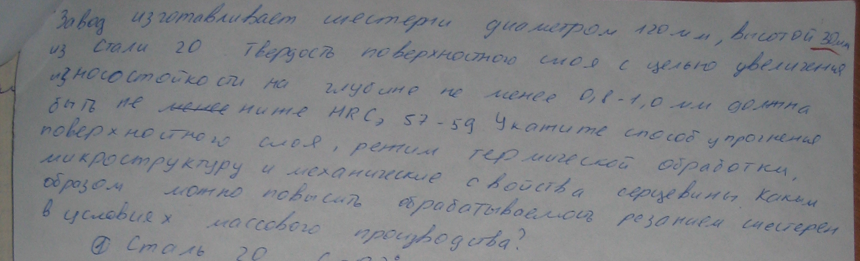 Завод изготавливает шестерни диаметром 120мм, высотой 30мм
из стали 20. Твердость поверхностного слоя с целью увеличения
износостойкости на глубине не менее 0,8-1,0 мм должна
быть не менее ниже HRCэ 57-59 Укажите способ упрочнения
поверхностного слоя, режим термической обработки,
микроструктуру и механические свойства сердцевины. Каким
образом можно повысить обрабатываемость резанием шестерен
в условиях массового производства?
① Сталь 20